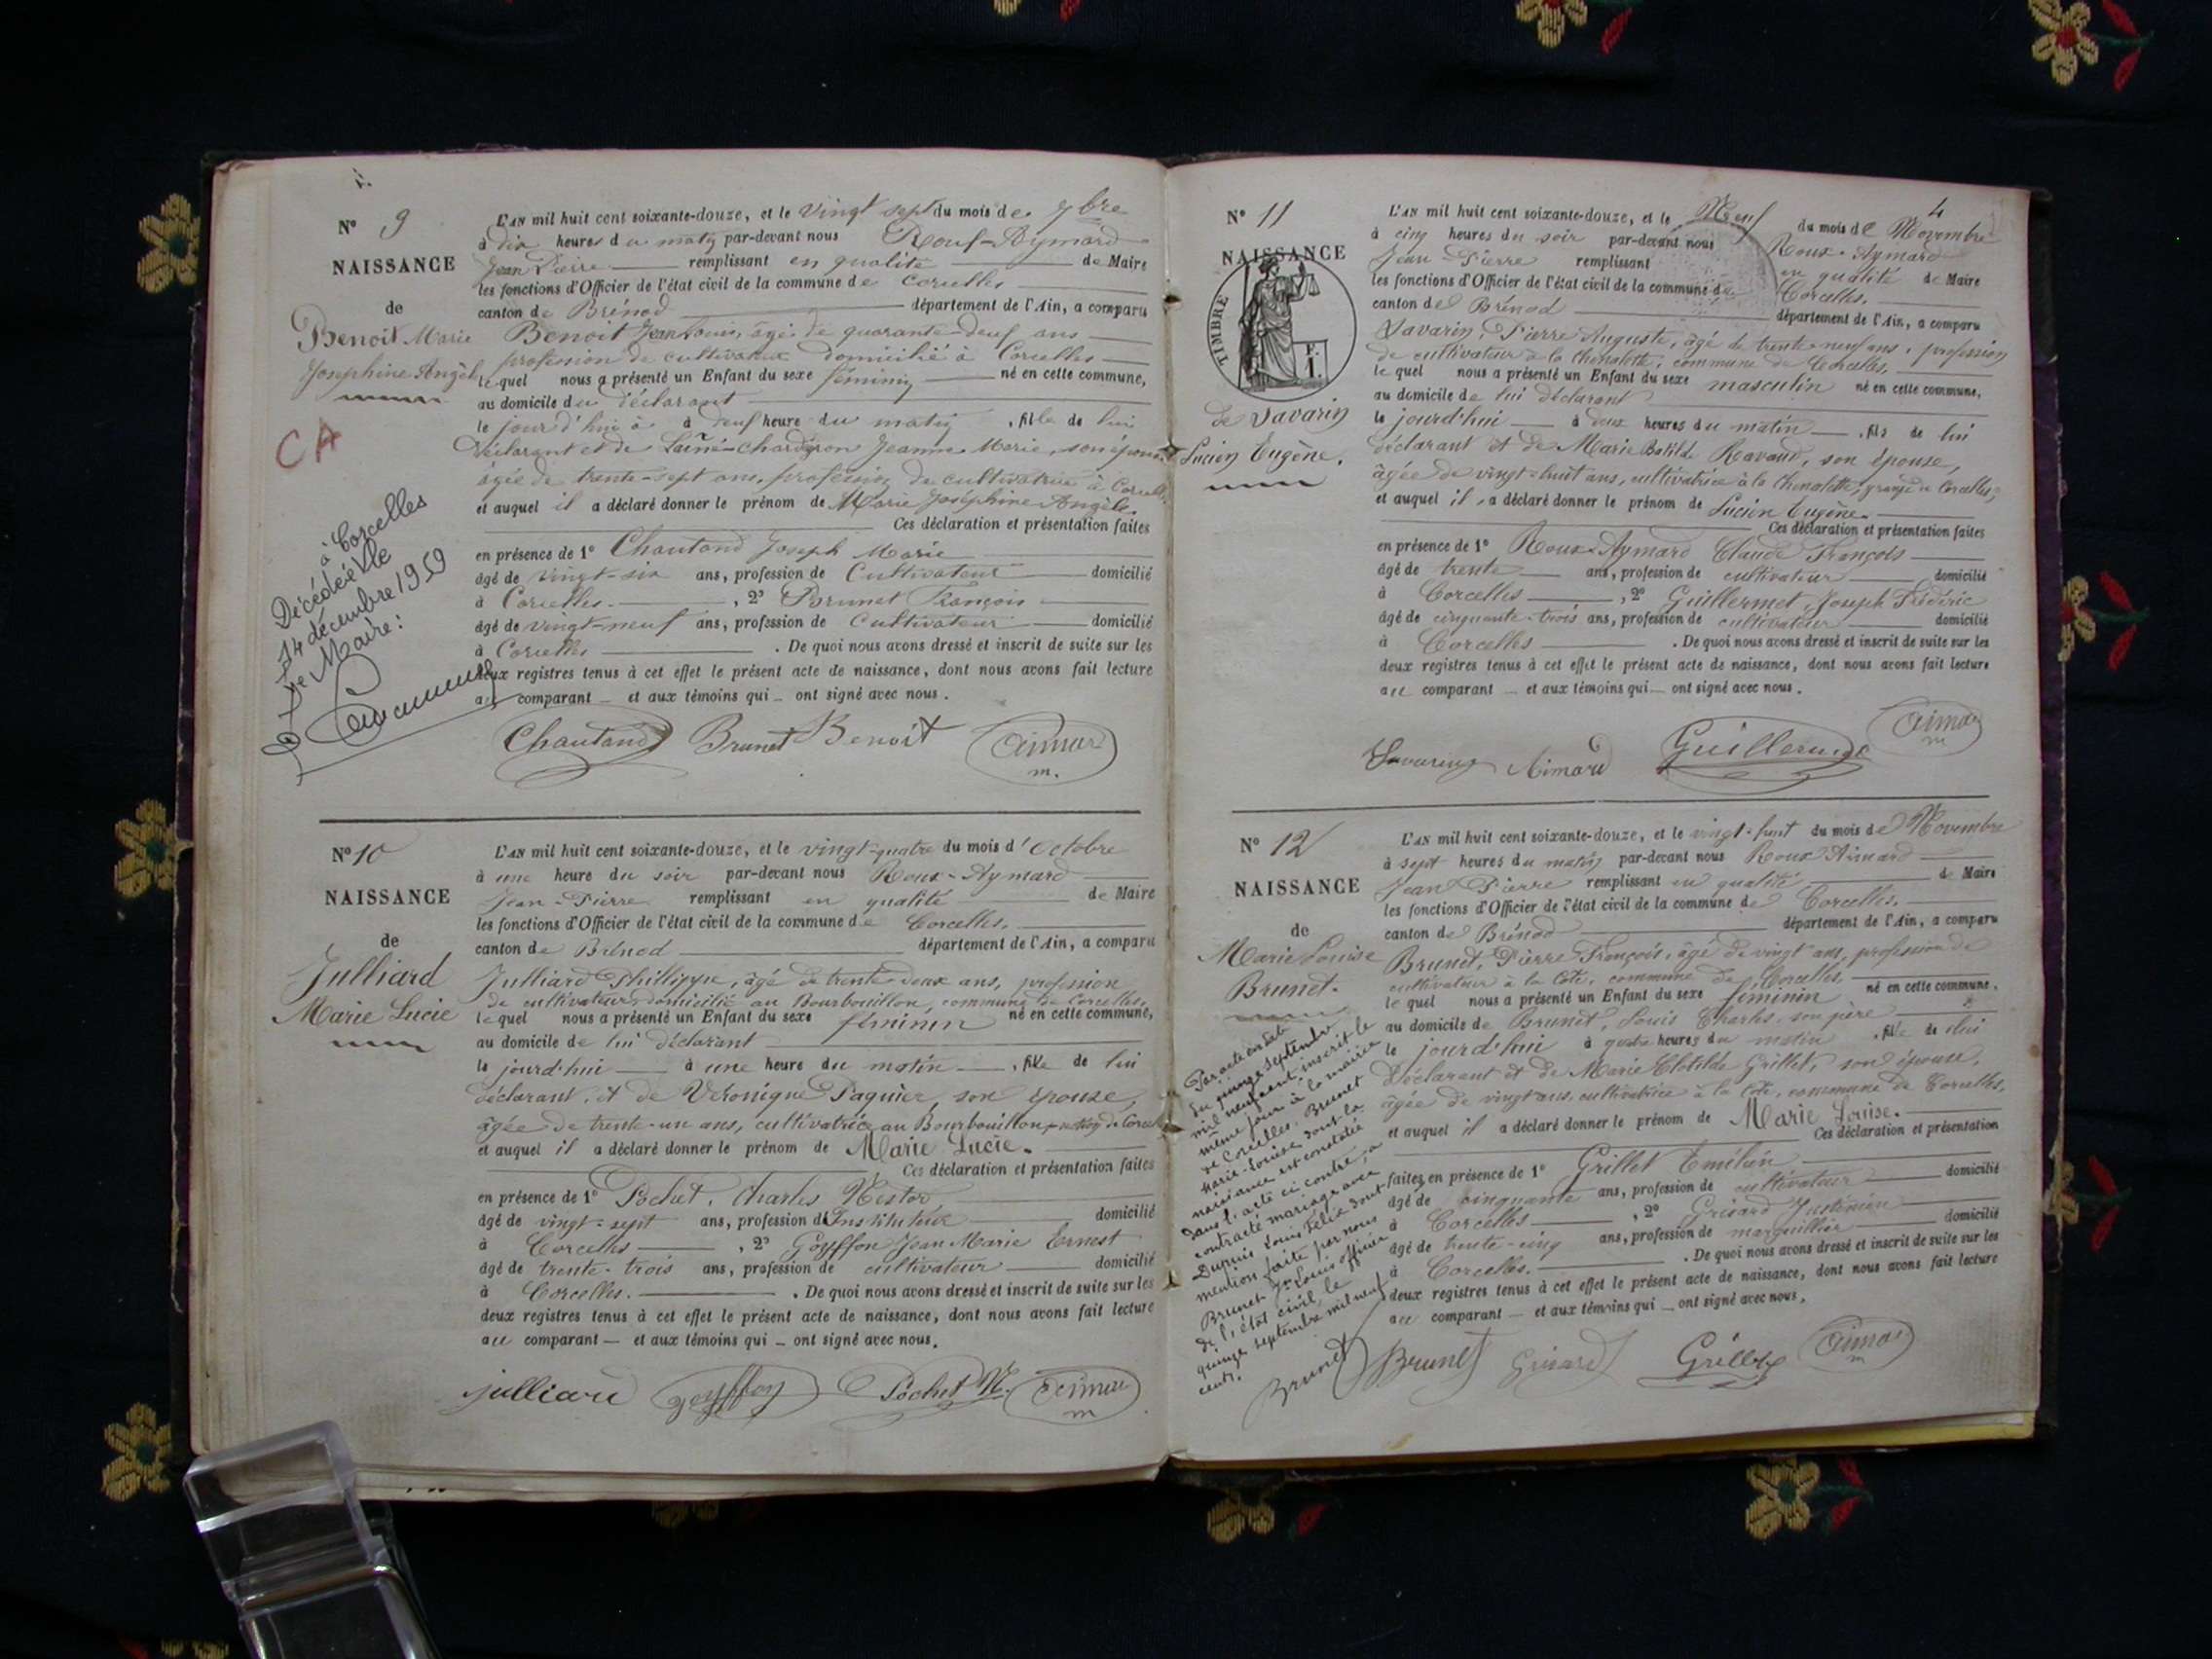 N° 9
NAISSANCE
de
Benoit Marie
Josephine Angèle
CA
Décédée à Corcelles
le
14 décembre 1959
Le Maire:
L'AN mil huit cent soixante-douze, et le vingt sept du mois de 7bre
à dix heures du matin par-devant nous Roux-Aymard
Jean Pierre remplissant en qualité de Maire
les fonctions d'Officier de l'état civil de la commune de Corcelles
canton de Brénod département de l'Ain, a comparu
Benoit Jean Louis, âgé de quarante-neuf ans
profession de cultivateur domicilié à Corcelles
lequel nous a présenté un Enfant du sexe féminin né en cette commune,
au domicile du déclarant
le jour d'hui à heure du matin, fille de lui
déclarant et de Jeanne Marie, son épouse
âgée de trente-sept ans, profession de cultivatrice à Corcelles
et auquel il a déclaré donner le prénom de Marie Joséphine Angèle.
Ces déclaration et présentation faites
en présence de 1° Chautand Joseph Marie
âgé de vingt-six ans, profession de Cultivateur domicilié
à Corcelles, 2° Brunet François
âgé de vingt-neuf ans, profession de Cultivateur domicilié
à Corcelles. De quoi nous avons dressé et inscrit de suite sur les
deux registres tenus à cet effet le présent acte de naissance, dont nous avons fait lecture
au comparant et aux témoins qui ont signé avec nous.
Chautand Brunet Benoit Aimar
m.
N° 10
NAISSANCE
de
Julliard
Marie Lucie
L'AN mil huit cent soixante-douze, et le vingt-quatre du mois d'Octobre
à une heure du soir par-devant nous Roux-Aymard
Jean-Pierre remplissant en qualité de Maire
les fonctions d'Officier de l'état civil de la commune de Corcelles.
canton de Brénod département de l'Ain, a comparu
Julliard Phillippe, âgé de trente deux ans, profession
de cultivateur domicilié au Bourbouillon, commune de Corcelles,
lequel nous a présenté un Enfant du sexe féminin né en cette commune,
au domicile de lui déclarant
le jourd'hui à une heure du matin, fille de lui
déclarant, et de Véronique Paquier, son épouse,
âgée de trente-un ans, cultivatrice au Bourbouillon,
et auquel il a déclaré donner le prénom de Marie Lucie.
Ces déclaration et présentation faites
en présence de 1° Pochet, Charles Nestor
âgé de vingt-sept ans, profession d'Instituteur domicilié
à Corcelles, 2° Goyffon Jean Marie Ernest
âgé de trente-trois ans, profession de cultivateur domicilié
à Corcelles. De quoi nous avons dressé et inscrit de suite sur les
deux registres tenus à cet effet le présent acte de naissance, dont nous avons fait lecture
au comparant et aux témoins qui ont signé avec nous.
julliard goyffon Pochet N. Aimar
m
4
N° 11
NAISSANCE
TIMBRE
de Savarin
Lucien Eugène.
L'AN mil huit cent soixante-douze, et le Neuf du mois de Novembre
à cinq heures du soir par-devant nous Roux-Aymard
Jean Pierre remplissant en qualité de Maire
les fonctions d'Officier de l'état civil de la commune de Corcelles.
canton de Brénod département de l'Ain, a comparu
Savarin, Pierre Auguste, âgé de trente-neuf ans, profession
de cultivateur à la Chenalette, commune de Corcelles,
lequel nous a présenté un Enfant du sexe masculin né en cette commune,
au domicile de lui déclarant
le jourd'hui à deux heures du matin, fils de lui
déclarant et de Marie Batilde Ravaud, son épouse,
âgée de vingt-huit ans, cultivatrice à la Chenalette,
et auquel il a déclaré donner le prénom de Lucien Eugène.
Ces déclaration et présentation faites
en présence de 1° Roux-Aymard Claude François
âgé de trente ans, profession de cultivateur domicilié
à Corcelles, 2° Guillermet, Joseph Frédéric
âgé de cinquante-trois ans, profession de cultivateur domicilié
à Corcelles. De quoi nous avons dressé et inscrit de suite sur les
deux registres tenus à cet effet le présent acte de naissance, dont nous avons fait lecture
au comparant et aux témoins qui ont signé avec nous.
Savarin Aimard Guillermet Aimar
m
N° 12
NAISSANCE
de
Marie Louise
Brunet.
Par acte en date
du quinze septembre
mil neuf cent inscrit le
même jour à la mairie
de Corcelles, Brunet
Marie-Louise dont la
naissance est constatée
dans l'acte ci contre, a
contracté mariage avec
Dupuis Louis Félix dont
mention faite par nous
Brunet Jn Louis officier
de l'état civil, le
quinze septembre mil neuf
cent.
Brunet
L'AN mil huit cent soixante-douze, et le vingt-huit du mois de Novembre
à sept heures du matin par-devant nous Roux Aimard
Jean Pierre remplissant en qualité de Maire
les fonctions d'Officier de l'état civil de la commune de Corcelles.
canton de Brénod département de l'Ain, a comparu
Brunet, Pierre François, âgé de vingt ans, profession de
cultivateur à la Côte, commune de Corcelles,
lequel nous a présenté un Enfant du sexe féminin né en cette commune,
au domicile de Brunet, Louis Charles, son père
le jourd'hui à quatre heures du matin, fille de lui
Déclarant et de Marie Clotilde Grillet, son épouse,
âgée de vingt ans, cultivatrice à la Côte, commune de Corcelles,
et auquel il a déclaré donner le prénom de Marie Louise.
Ces déclaration et présentation
faites en présence de 1° Grillet Emilien
âgé de cinquante ans, profession de cultivateur domicilié
à Corcelles, 2° Grisard Justinien
âgé de trente-cinq ans, profession de marguillier domicilié
à Corcelles. De quoi nous avons dressé et inscrit de suite sur les
deux registres tenus à cet effet le présent acte de naissance, dont nous avons fait lecture
au comparant et aux témoins qui ont signé avec nous.
Brunet Grisard Grillet Aimar
m